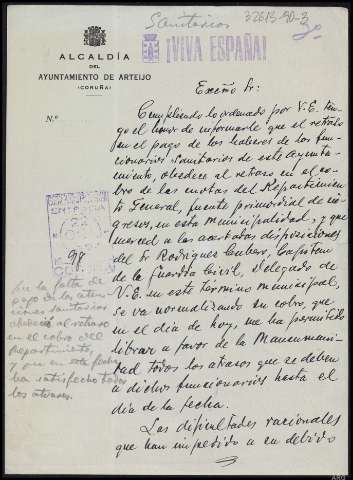 Sanitarios
32613-90-3
¡VIVA ESPAÑA!
ALCALDÍA
DEL
AYUNTAMIENTO DE ARTEIJO
(CORUÑA)
N.º
Excño Sr:
Cumpliendo lo ordenado por V.E. ten-
go el honor de informarle que el retraso
en el pago de los haberes de los fun-
cionarios sanitarios de este Ayunta-
miento, obedece al retraso en el co-
bro de las cuotas del Repartimien-
to General, fuente primordial de in-
gresos, en esta municipalidad, y que
merced a las acertadas disposiciones
del Sr Rodriguez Cambero, Capitan
de la Guardia Civil, Delegado de
V.E. en este termino municipal,
se va normalizando su cobro, que
en el dia de hoy, me ha permitido
librar a favor de la Mancomuni-
dad todos los atrasos que se deben
a dichos funcionarios hasta el
dia de la fecha.
Las dificultades racionales
que han impedido a su debido
98
que la falta de
pago de las aten-
ciones sanitarias
obedece al retraso
en el cobro del
Repartimiento,
y que en esta fecha
ha satisfecho todos
los atrasos.